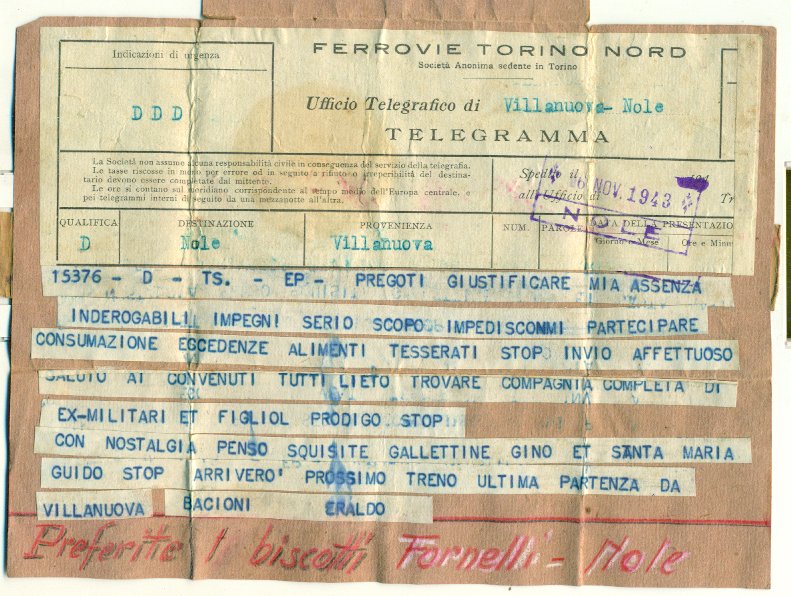 Indicazioni di urgenza
DDD
FERROVIE TORINO NORD
Società Anonima sedente in Torino
Ufficio Telegrafico di Villanuova-Nole
TELEGRAMMA
La Società non assume alcuna responsabilità civile in conseguenza del servizio della telegrafia.
Le tasse riscosse in meno per errore od in seguito a rifiuto o irreperibilità del destina-
tario devono essere completate dal mittente.
Le ore si contano sul meridiano corrispondente al tempo medio dell'Europa centrale, e
pei telegrammi interni di seguito da una mezzanotte all'altra.
Spedito il 194
all'Ufficio di Tr
6 NOV. 1943
NOLE
QUALIFICA DESTINAZIONE PROVENIENZA NUM. PAROLE DATA DELLA PRESENTAZIO
Giorno e Mese Ore e Minu
D Nole Villanuova
15376 - D - TS. - EP - PREGOTI GIUSTIFICARE MIA ASSENZA
INDEROGABILI IMPEGNI SERIO SCOPO IMPEDISCONMI PARTECIPARE
CONSUMAZIONE ECCEDENZE ALIMENTI TESSERATI STOP INVIO AFFETTUOSO
SALUTO AI CONVENUTI TUTTI LIETO TROVARE COMPAGNIA COMPLETA DI
EX-MILITARI ET FIGLIOL PRODIGO STOP
CON NOSTALGIA PENSO SQUISITE GALLETTINE GINO ET SANTA MARIA
GUIDO STOP ARRIVERO' PROSSIMO TRENO ULTIMA PARTENZA DA
VILLANUOVA BACIONI ERALDO
Preferite I biscotti Fornelli - Nole